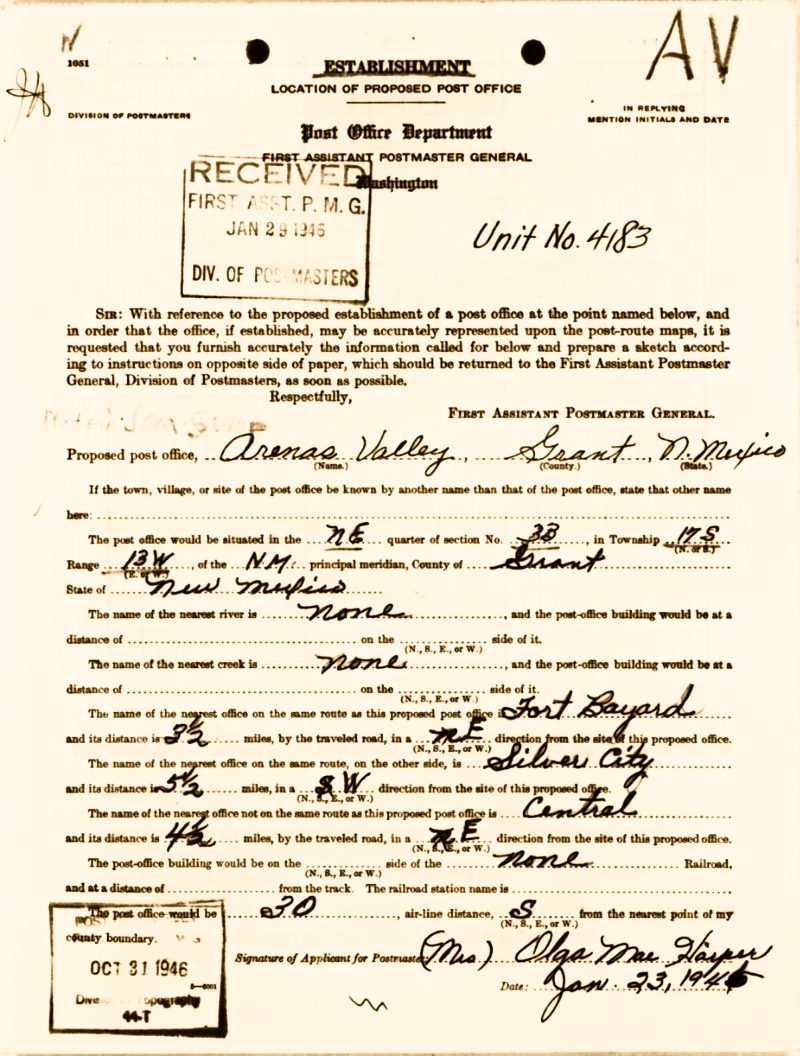 N
1051
ESTABLISHMENT
AV
LOCATION OF PROPOSED POST OFFICE
DIVISION OF POSTMASTERS
IN REPLYING
MENTION INITIALS AND DATE
Post Office Department
FIRST ASSISTANT POSTMASTER GENERAL
Washington
RECEIVED
FIRST ASST. P. M. G.
JAN 29 1946
DIV. OF POSTMASTERS
Unit No. 4183
SIR: With reference to the proposed establishment of a post office at the point named below, and
in order that the office, if established, may be accurately represented upon the post-route maps, it is
requested that you furnish accurately the information called for below and prepare a sketch accord-
ing to instructions on opposite side of paper, which should be returned to the First Assistant Postmaster
General, Division of Postmasters, as soon as possible.
Respectfully,
FIRST ASSISTANT POSTMASTER GENERAL.
Proposed post office, Arenas Valley, Grant, N. Mexico
(Name.) (County.) (State.)
If the town, village, or site of the post office be known by another name than that of the post office, state that other name
here:
The post office would be situated in the NE quarter of section No. 33, in Township 17 S
(N. or S.)
Range 13 W, of the N.M. principal meridian, County of Grant
(E. or W.)
State of New Mexico
The name of the nearest river is none, and the post-office building would be at a
distance of on the side of it.
(N., S., E., or W.)
The name of the nearest creek is none, and the post-office building would be at a
distance of on the side of it.
(N., S., E., or W.)
The name of the nearest office on the same route as this proposed post office is Fort Bayard
and its distance is 3½ miles, by the traveled road, in a N.E. direction from the site of this proposed office.
(N., S., E., or W.)
The name of the nearest office on the same route, on the other side, is Silver City
and its distance is 5½ miles, in a S W direction from the site of this proposed office.
(N., S., E., or W.)
The name of the nearest office not on the same route as this proposed post office is Central
and its distance is 4½ miles, by the traveled road, in a N. E. direction from the site of this proposed office.
(N., S., E., or W.)
The post-office building would be on the side of the none Railroad,
(N., S., E., or W.)
and at a distance of from the track. The railroad station name is
The post office would be 30, air-line distance, S from the nearest point of my
(N., S., E., or W.)
county boundary.
OCT 31 1946
44-T
Signature of Applicant for Postmaster (Mrs) Olga Mae Harper
Date: Jan. 23, 1946